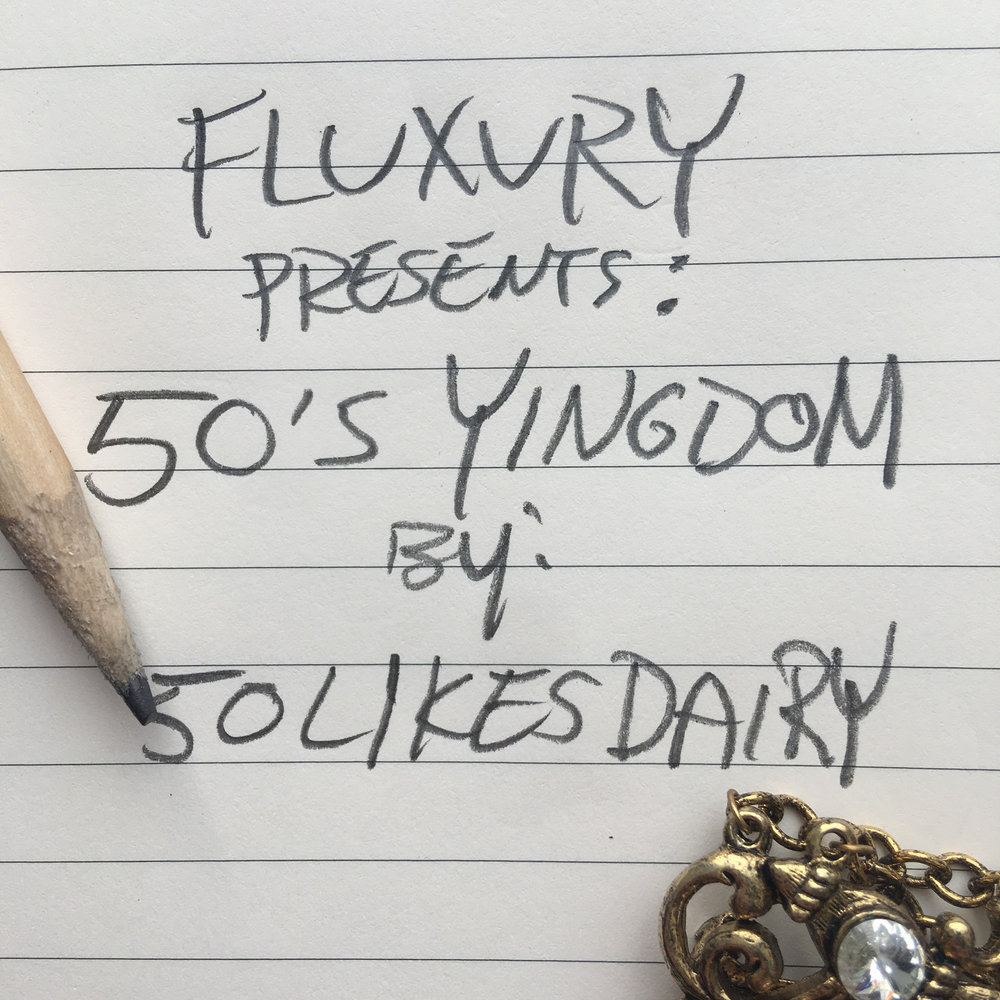 FLUXURY
PRESENTS:
50'S YINGDOM
BY:
50LIKESDAIRY